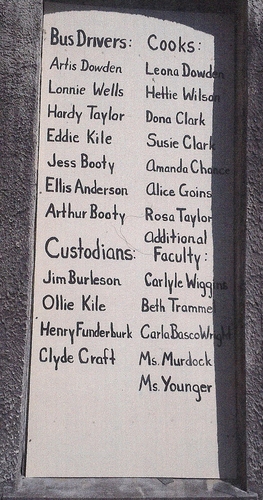 Bus Drivers:
Artis Dowden
Lonnie Wells
Hardy Taylor
Eddie Kile
Jess Booty
Ellis Anderson
Arthur Booty
Custodians:
Jim Burleson
Ollie Kile
Henry Funderburk
Clyde Craft
Cooks:
Leona Dowden
Hettie Wilson
Dona Clark
Susie Clark
Amanda Chance
Alice Goins
Rosa Taylor
Additional
Faculty:
Carlyle Wiggins
Beth Trammel
Carla Basco Wright
Ms. Murdock
Ms. Younger